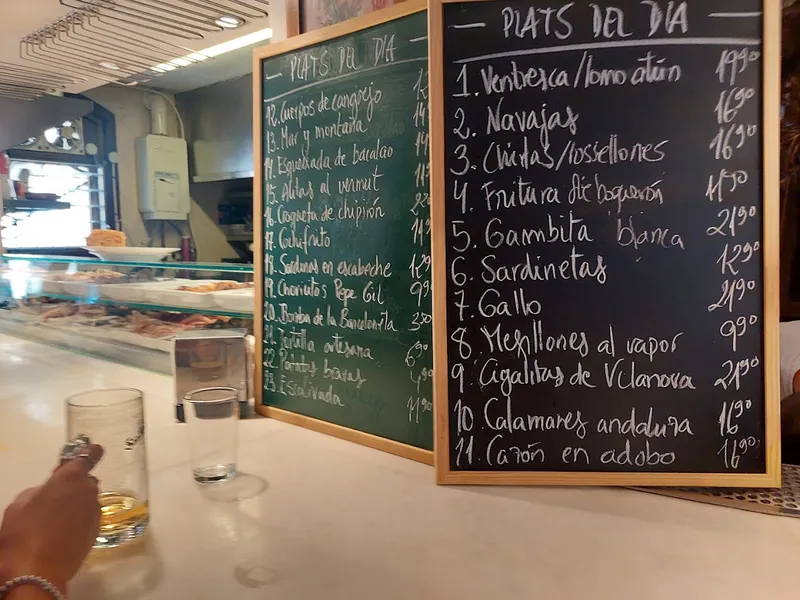 PLATS DEL DIA
12. Cuerpos de cangrejo
13. Mar y montaña
14. Esqueixada de bacalao
15. Alitas al vermut
16. Croqueta de chipirón
17. Cochifrito
18. Sardinas en escabeche 12,90
19. Choricitos Pepe Gil 9,90
20. Bomba de la Barceloneta 3,50
21. Tortilla artesana 6,90
22. Patatas bravas 4,90
23. Escalivada 11,90
PLATS DEL DIA
1. Ventresca/lomo atún 19,90
2. Navajas 16,90
3. Chirlas/rossellones 16,90
4. Fritura de boquerón
5. Gambita blanca 21,90
6. Sardinetas 12,90
7. Gallo 21,90
8. Mejillones al vapor 9,90
9. Cigalitas de Vilanova 21,90
10. Calamares andaluza 16,90
11. Cazón en adobo 16,90